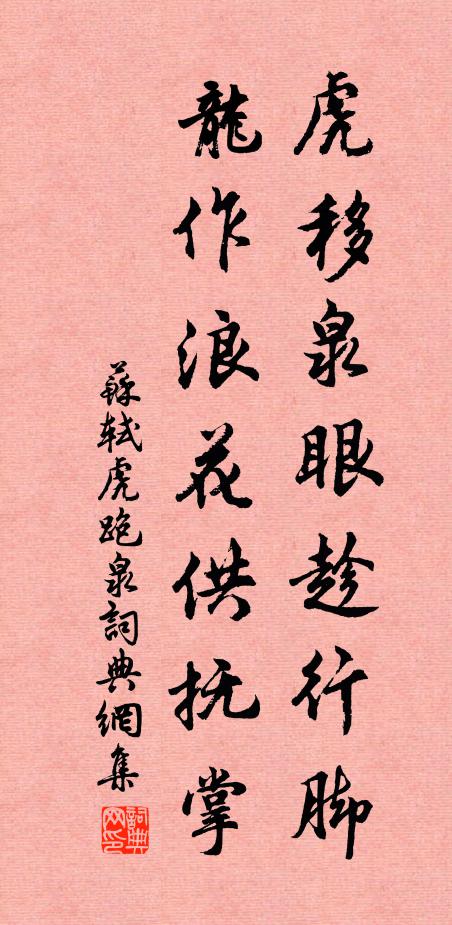 虎移泉眼趁行脚
龍作浪花供抚掌
蘇軾虎跑泉詞典網集
詞典网印